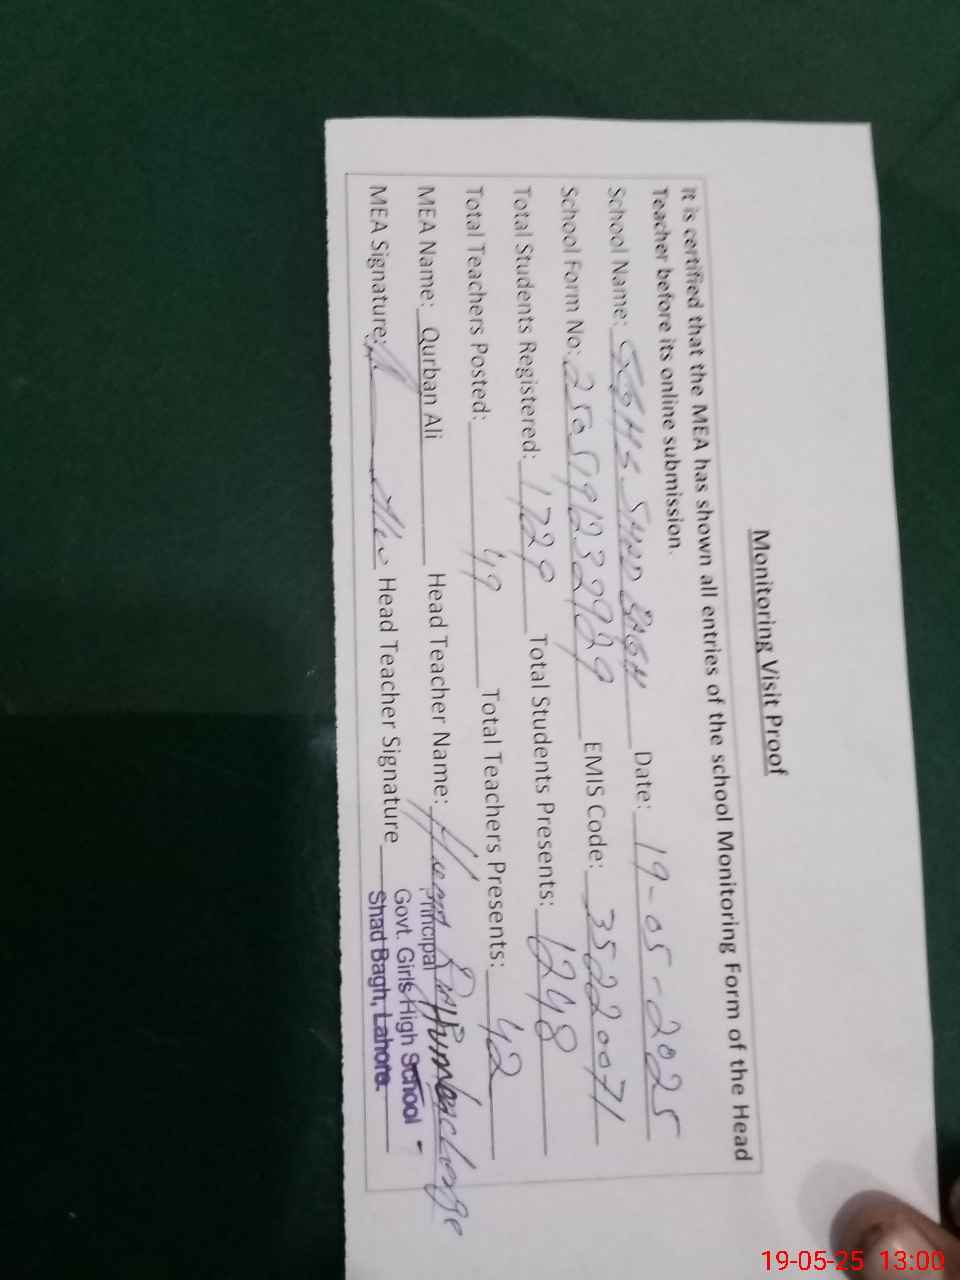 Monitoring Visit Proof
It is certified that the MEA has shown all entries of the school Monitoring Form of the Head
Teacher before its online submission.
School Name: GGHS SHAD BAGH Date: 19-05-2025
School Form No: EMIS Code: 35220071
Total Students Registered: 1729 Total Students Presents: 1248
Total Teachers Posted: 49 Total Teachers Presents: 42
MEA Name: Qurban Ali Head Teacher Name: Incharge
MEA Signature: Head Teacher Signature
Principal
Govt. Girls High School
Shad Bagh, Lahore.
19-05-25 13:00